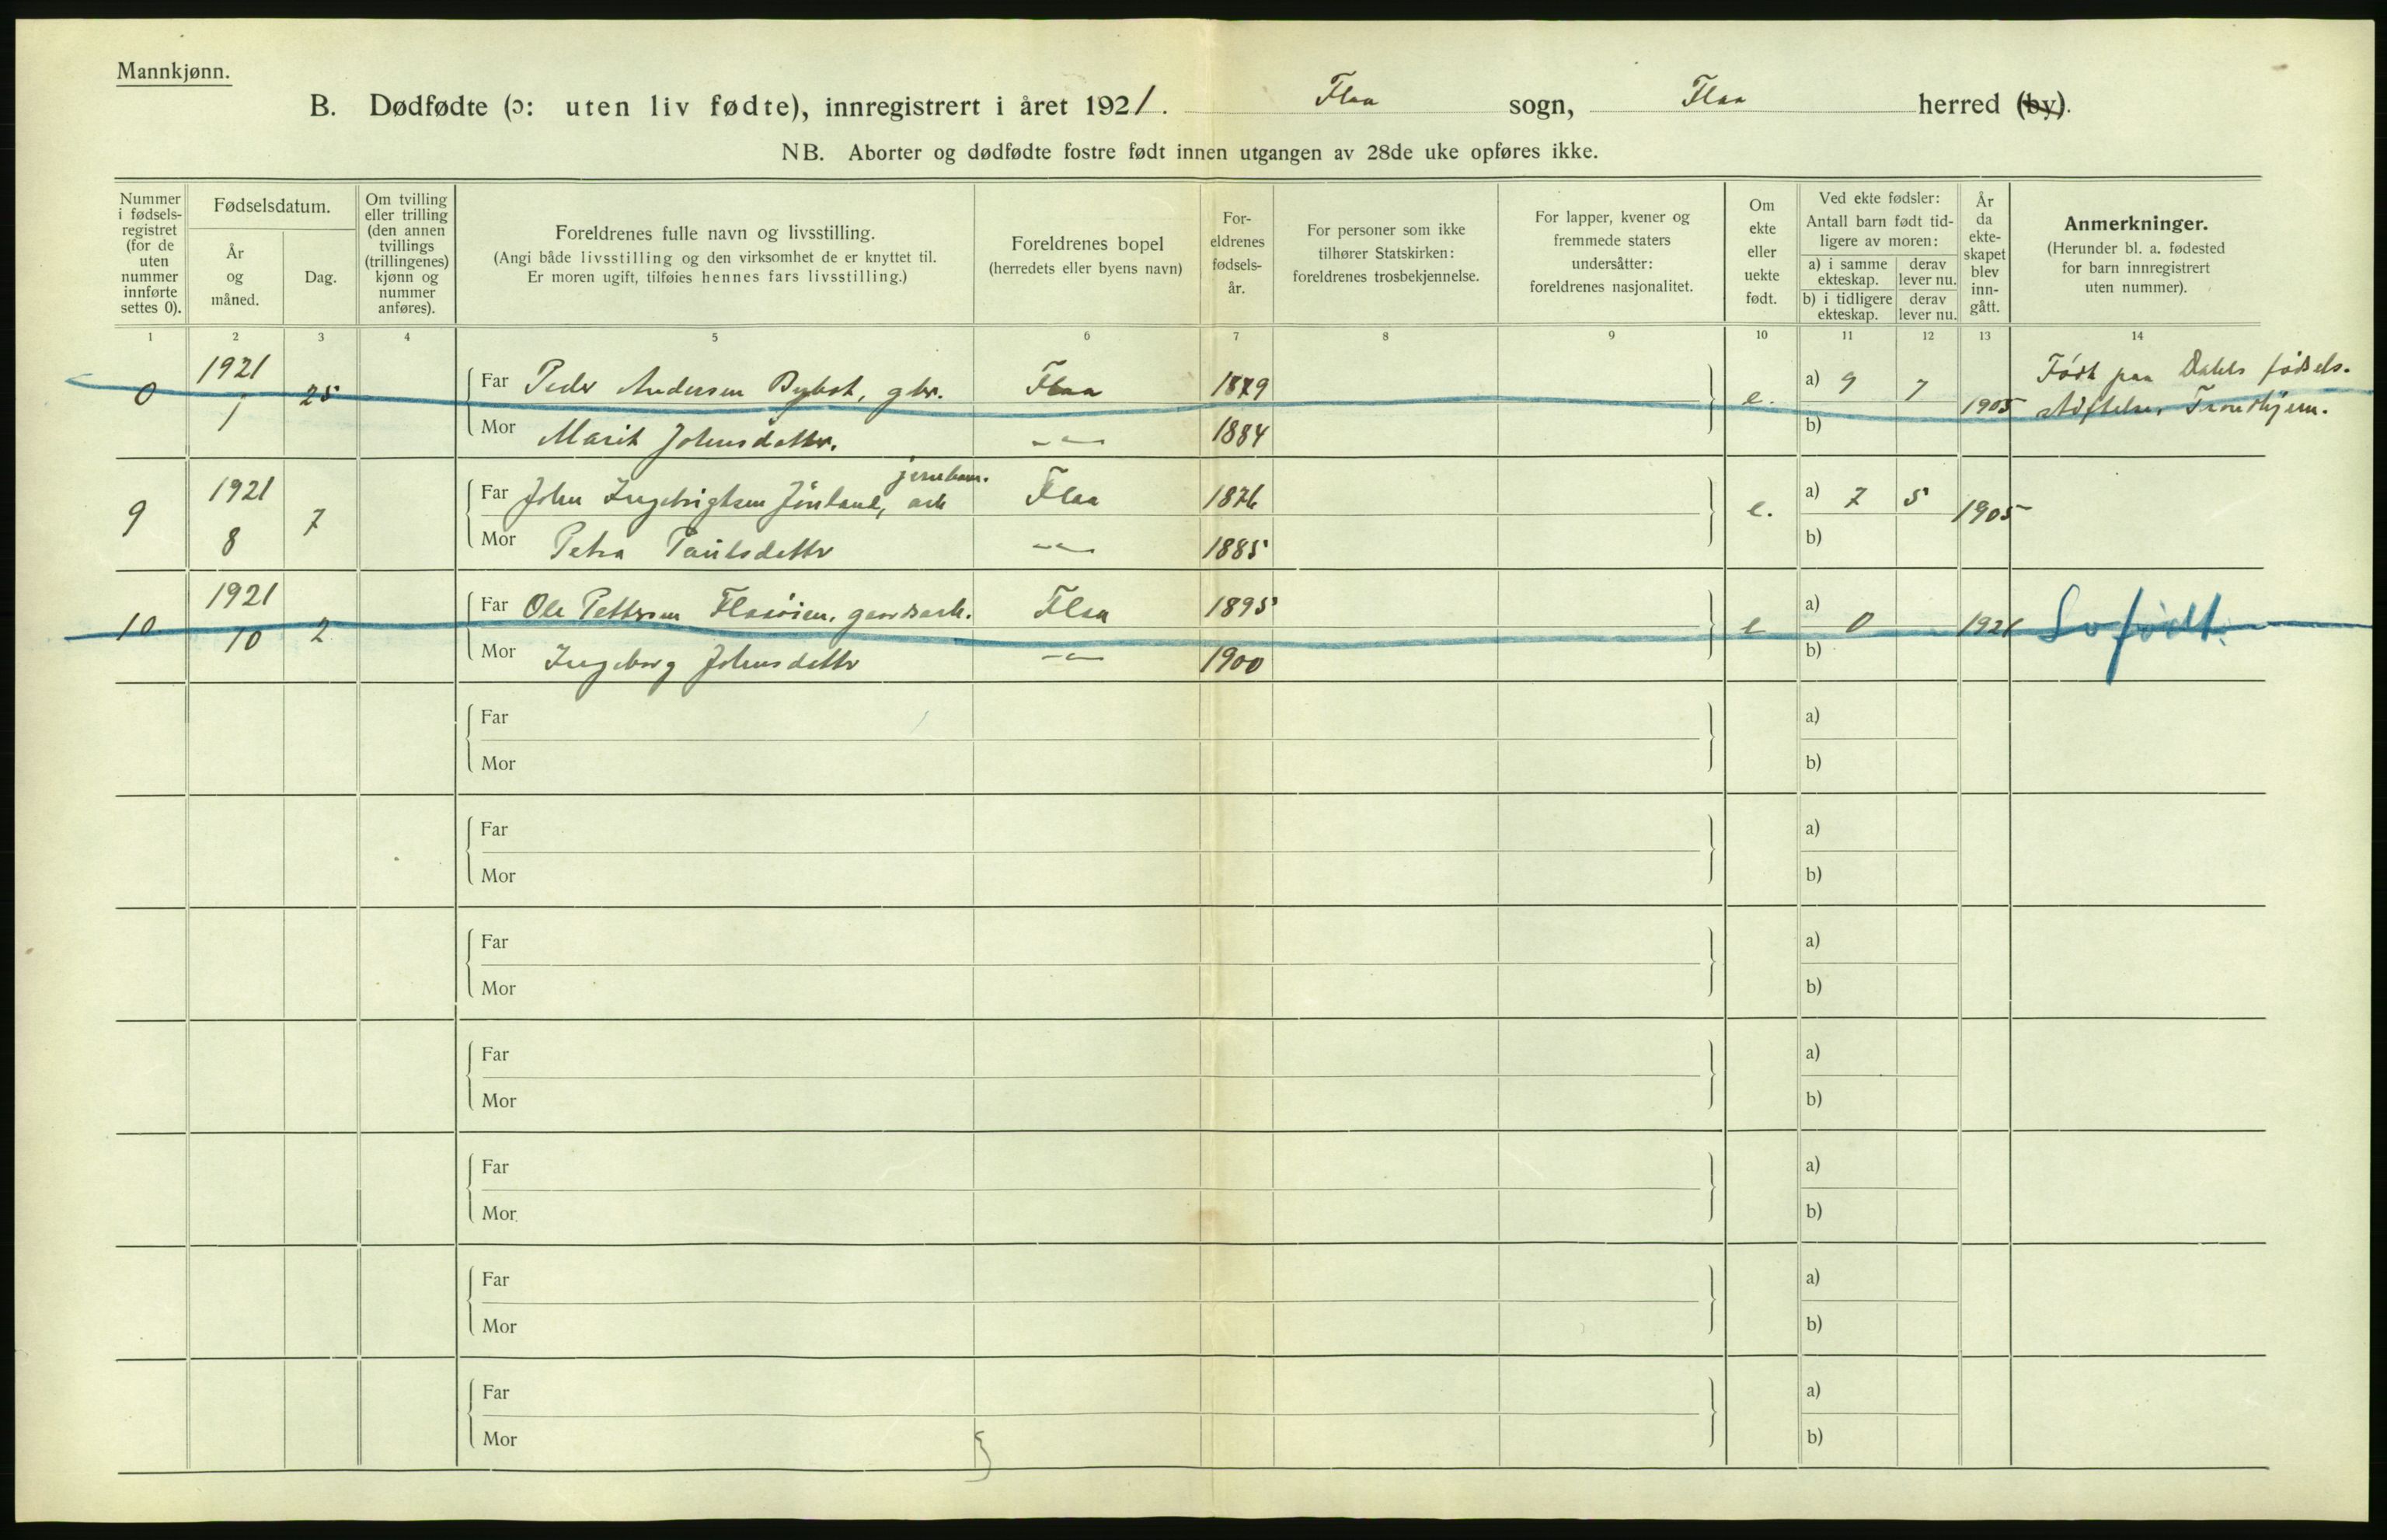 Mannkjønn.
B. Dødfødte (ɔ: uten liv fødte), innregistrert i året 1921. Flaa sogn, Flaa herred (by).
NB. Aborter og dødfødte fostre født innen utgangen av 28de uke opføres ikke.
Nummer i fødsels-registret (for de uten nummer innførte settes 0).
Fødselsdatum.
År og måned.
Dag.
Om tvilling eller trilling (den annen tvillings (trillingenes) kjønn og nummer anføres).
Foreldrenes fulle navn og livsstilling.
(Angi både livsstilling og den virksomhet de er knyttet til.
Er moren ugift, tilføies hennes fars livsstilling.)
Foreldrenes bopel
(herredets eller byens navn)
For-eldrenes fødsels-år.
For personer som ikke tilhører Statskirken: foreldrenes trosbekjennelse.
For lapper, kvener og fremmede staters undersåtter: foreldrenes nasjonalitet.
Om ekte eller uekte født.
Ved ekte fødsler:
Antall barn født tid-ligere av moren:
a) i samme ekteskap.
derav lever nu.
b) i tidligere ekteskap.
derav lever nu.
År da ekte-skapet blev inn-gått.
Anmerkninger.
(Herunder bl. a. fødested for barn innregistrert uten nummer).
1 2 3 4 5 6 7 8 9 10 11 12 13 14
0 1921 1 25 Far Peder Andersen, gbr. Flaa 1879 e. a) 9 7 1905 Født paa fødsels-
stiftelse, Trondhjem.
Mor Marit Johnsdatter. —"— 1884 b)
jernban.
9 1921 8 7 Far John Ingebrigtsen, arb Flaa 1876 e. a) 7 5 1905
Mor Petra Paulsdatter —"— 1885 b)
10 1921 10 2 Far Ole Pettersen Flaaøien, gaardsarb. Flaa 1895 e a) 0 1921
Mor Ingeborg Johnsdatter —"— 1900 b)
Far a)
Mor b)
Far a)
Mor b)
Far a)
Mor b)
Far a)
Mor b)
Far a)
Mor b)
Far a)
Mor b)
Far a)
Mor b)